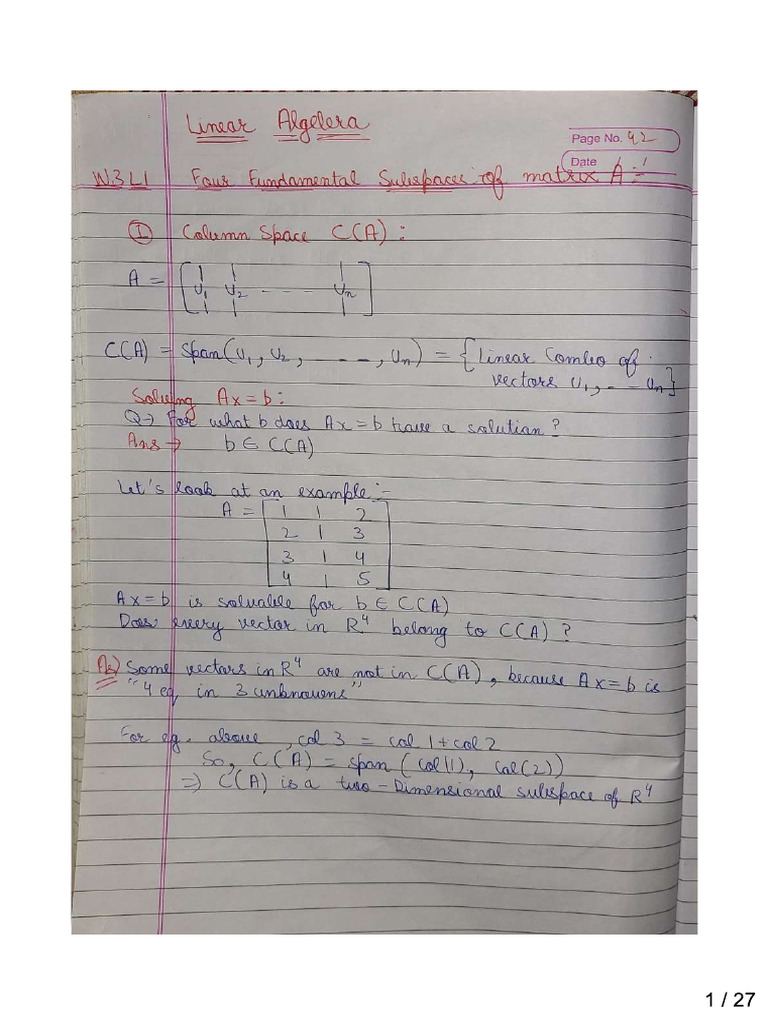 Linear Algebra
Page No. 42
Date
W3L1 Four Fundamental Subspaces of matrix A :-
① Column Space C(A) :
A = [ v1 v2 ---- vn ]
C(A) = span(v1, v2, ----, vn) = {linear Combo of
vectors v1, -- vn}
Solving Ax=b:
Q→ For what b does Ax=b have a solution?
Ans → b ∈ C(A)
Let's look at an example :-
A = [ 1 1 2
2 1 3
3 1 4
4 1 5 ]
Ax=b is solvable for b ∈ C(A)
Does every vector in R⁴ belong to C(A) ?
As) Some vectors in R⁴ are not in C(A), because Ax=b is
"4 eq in 3 unknowns"
For eg. above, col 3 = col 1 + col 2
So, C(A) = span (col(1), col(2))
⇒ C(A) is a two-Dimensional subspace of R⁴
1 / 27